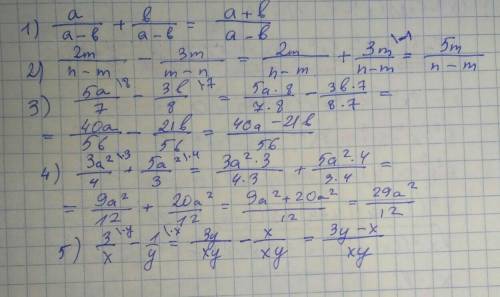 1) a/(a-в) + в/(a-в) = (a+в)/(a-в)
2) 2m/(n-m) - 3m/(m-n) = 2m/(n-m) + 3m\-1/(n-m) = 5m/(n-m)
3) 5a\8/7 - 3в\7/8 = 5a·8/7·8 - 3в·7/8·7 =
= 40a/56 - 21в/56 = (40a-21в)/56
4) 3a²\3/4 + 5a²\4/3 = 3a²·3/4·3 + 5a²·4/3·4 =
= 9a²/12 + 20a²/12 = (9a²+20a²)/12 = 29a²/12
5) 3\y/x - 1\x/y = 3y/xy - x/xy = (3y-x)/xy